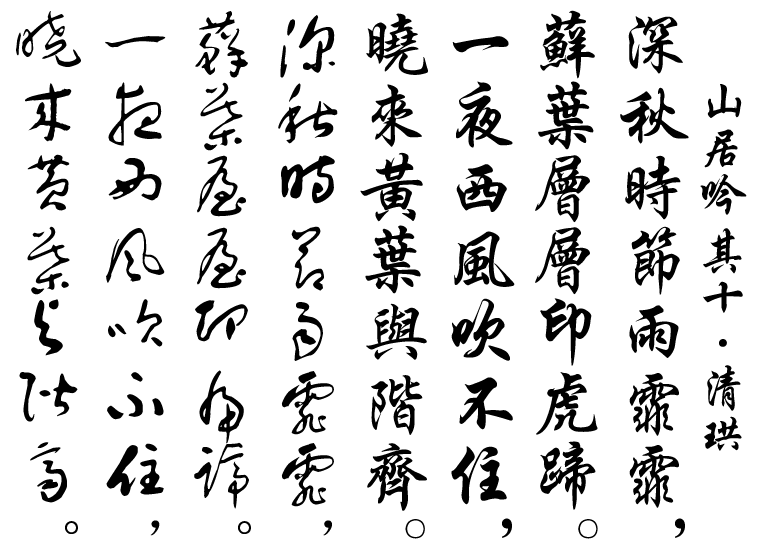 山居吟 其十·清珙
深秋時節雨霏霏，
蘚葉層層印虎蹄。
一夜西風吹不住，
曉來黃葉與階齊。
深秋時節雨霏霏，
蘚葉層層印虎蹄。
一夜西風吹不住，
曉來黃葉與階齊。